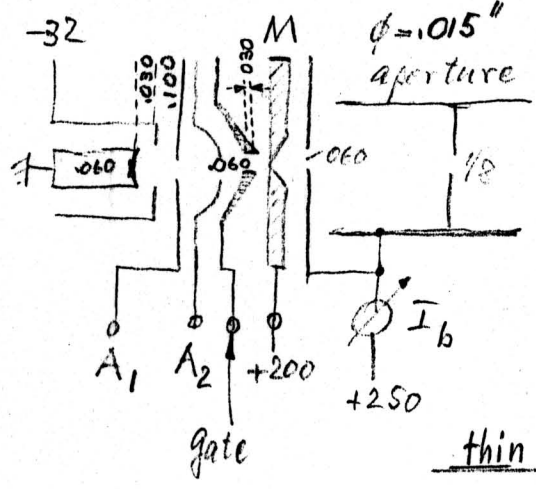 -32
.030
.100
.030
M
ϕ=.015"
aperture
.060
.060
.060
1/8
A1
A2
+200
Ib
+250
gate
thin